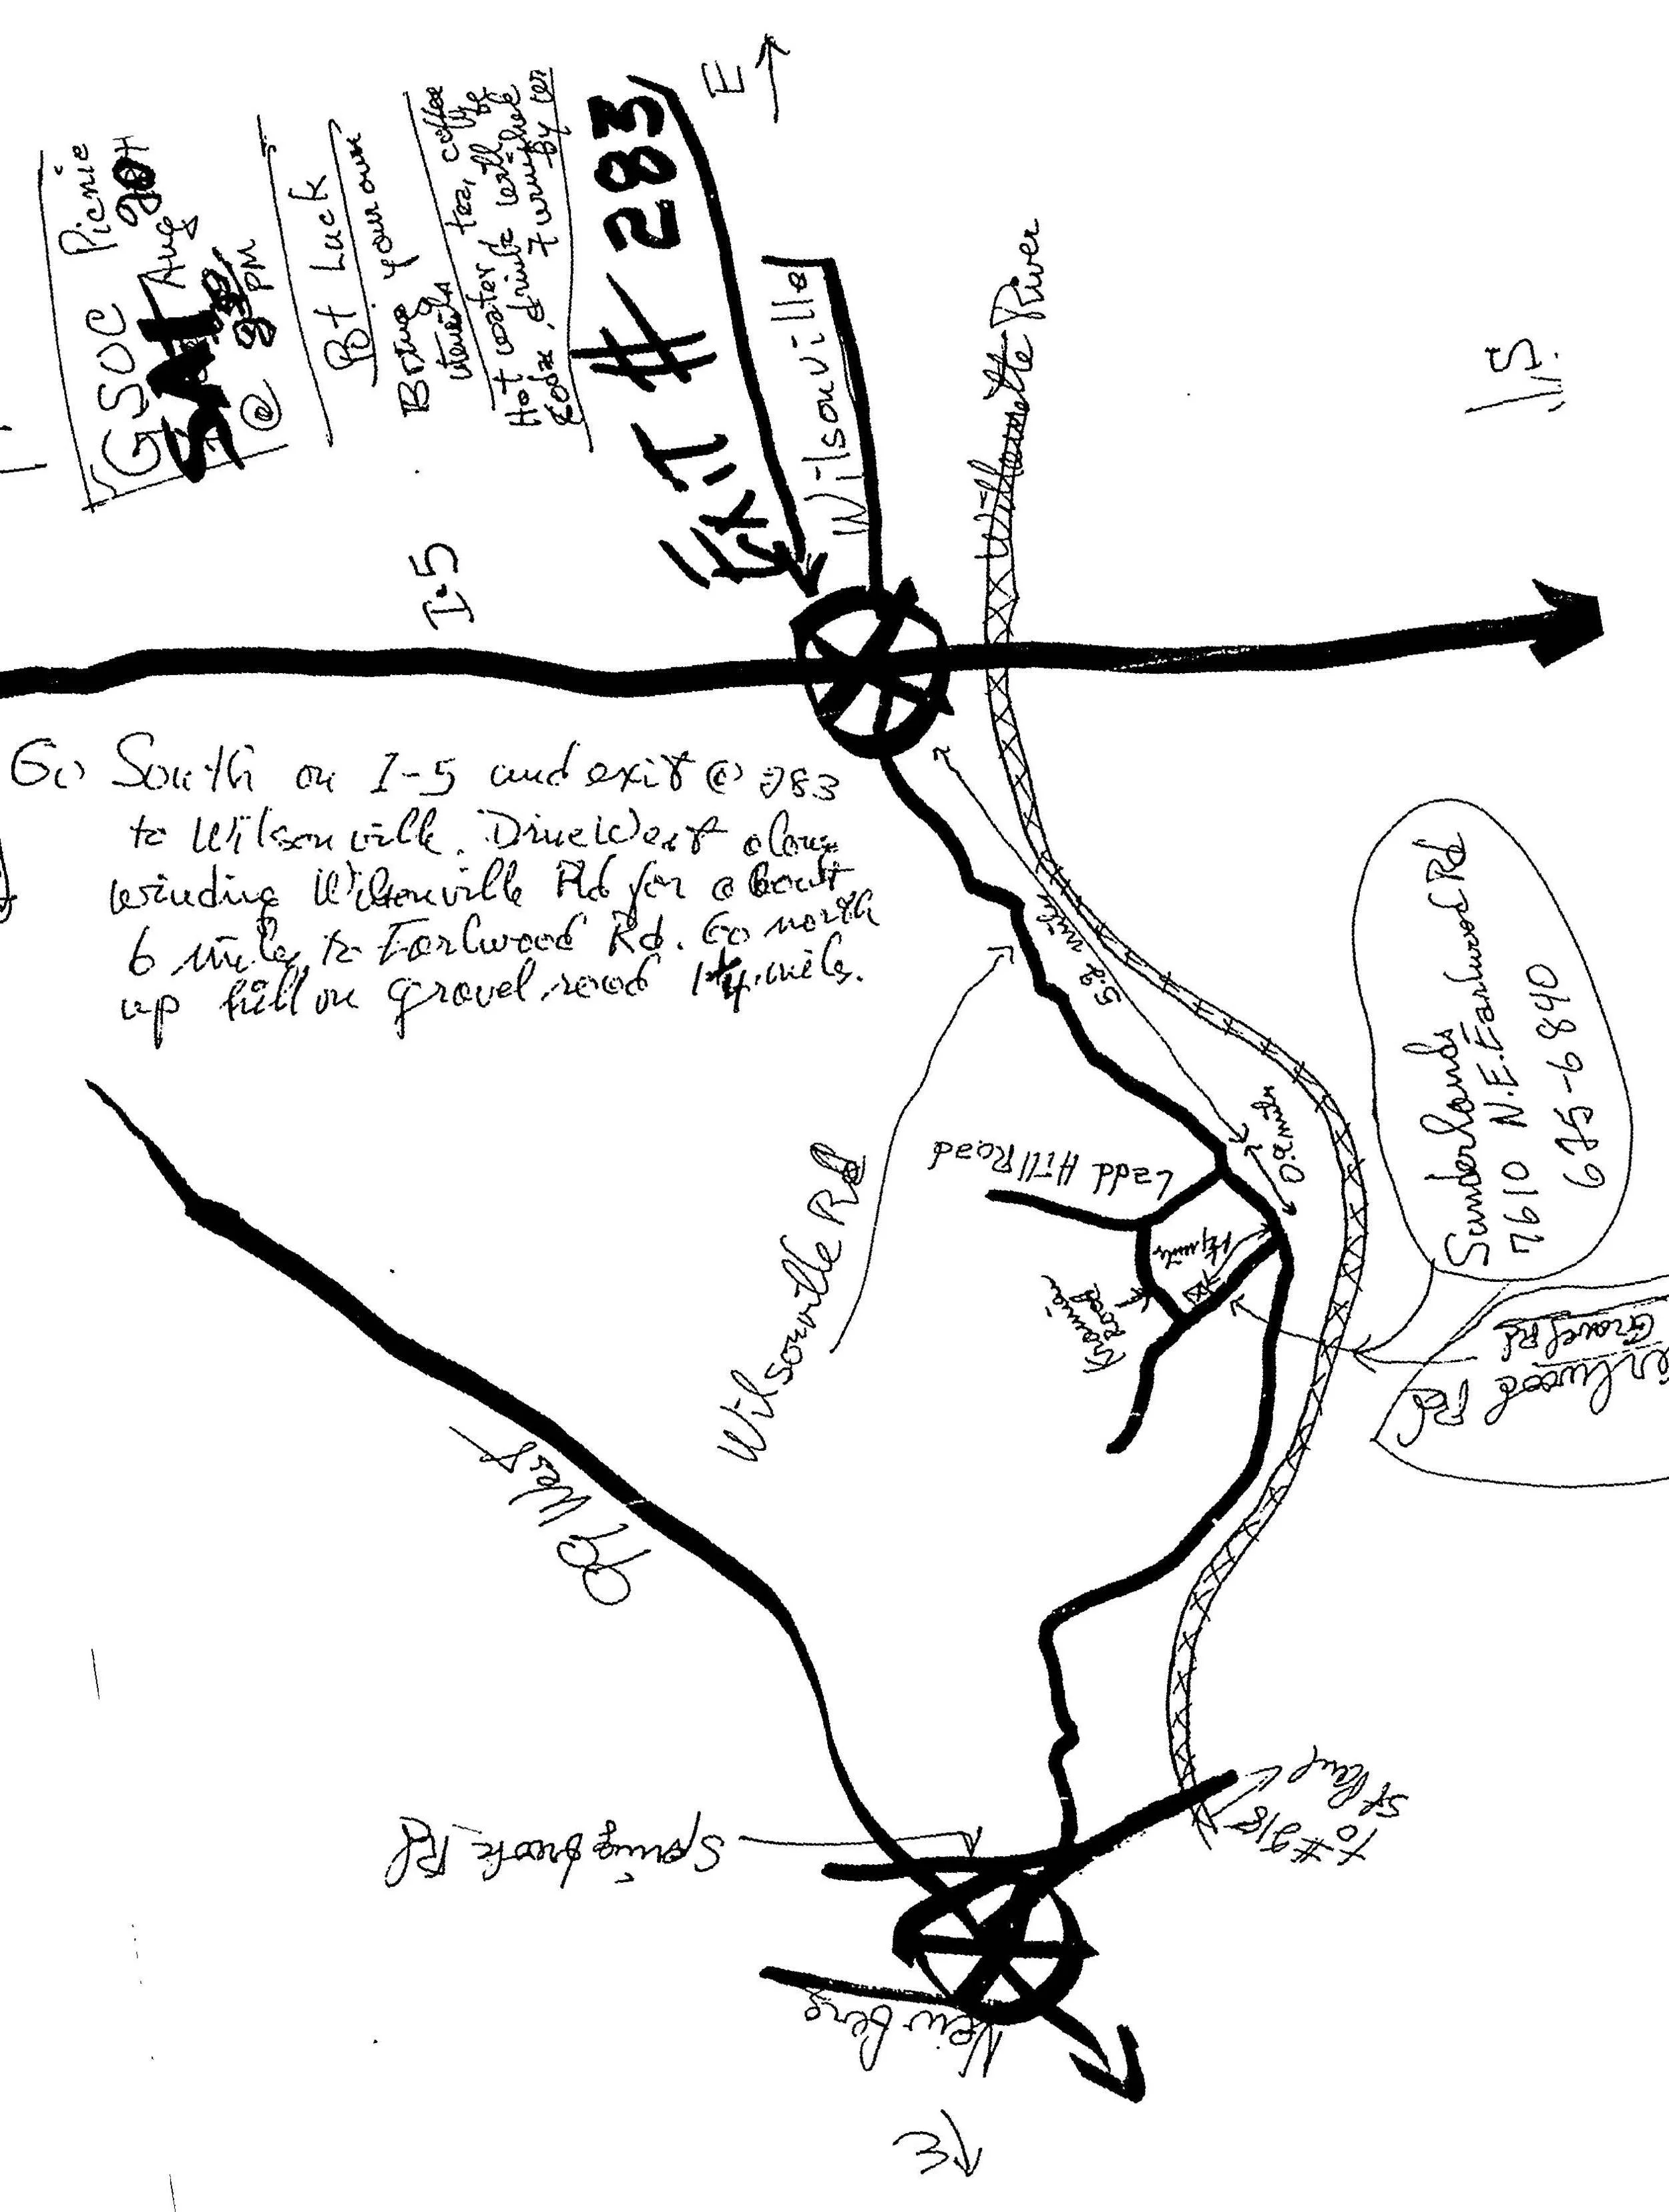 GSOC Picnic
SAT Aug 20
@ PM
Pot Luck
Bring your own
utensils
Hot water tea, coffee
EXIT # 283
E
Wilsonville
Willamette River
I-5
S.
Go South on I-5 and exit @ 283
to Wilsonville. Drive West along
winding Wilsonville Rd for about
6 miles to Earlwood Rd. Go north
up hill on gravel road 1 1/4 miles.
5.2 miles
0.9 miles
Wilsonville Rd
Ladd Hill Road
1 1/4 miles
Road
Sunderlands
7610 N.E. Earlwood Rd
625-6840
Gravel Rd
Rd
99 West
Springbrook Rd
To #219
St Paul
Newberg